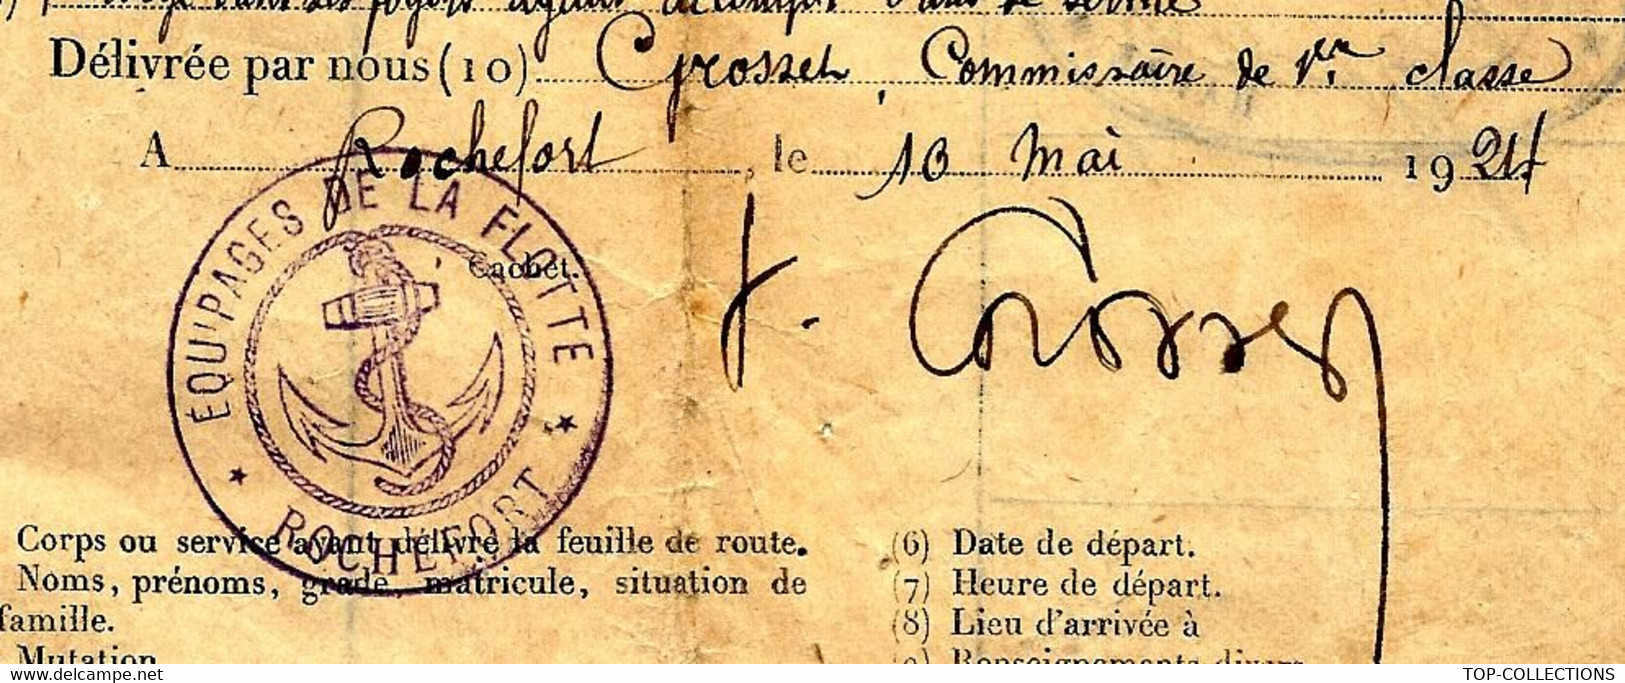 dans ses foyers ayant accompli 3 ans de service
Délivrée par nous (10) Grosset, Commissaire de 1re classe
A Rochefort, le 10 Mai 1924
ÉQUIPAGES DE LA FLOTTE
ROCHEFORT
Cachet.
Corps ou service ayant délivré la feuille de route.
Noms, prénoms, grade, matricule, situation de
famille.
Mutation
(6) Date de départ.
(7) Heure de départ.
(8) Lieu d'arrivée à
Renseignements divers
TOP-COLLECTIONS